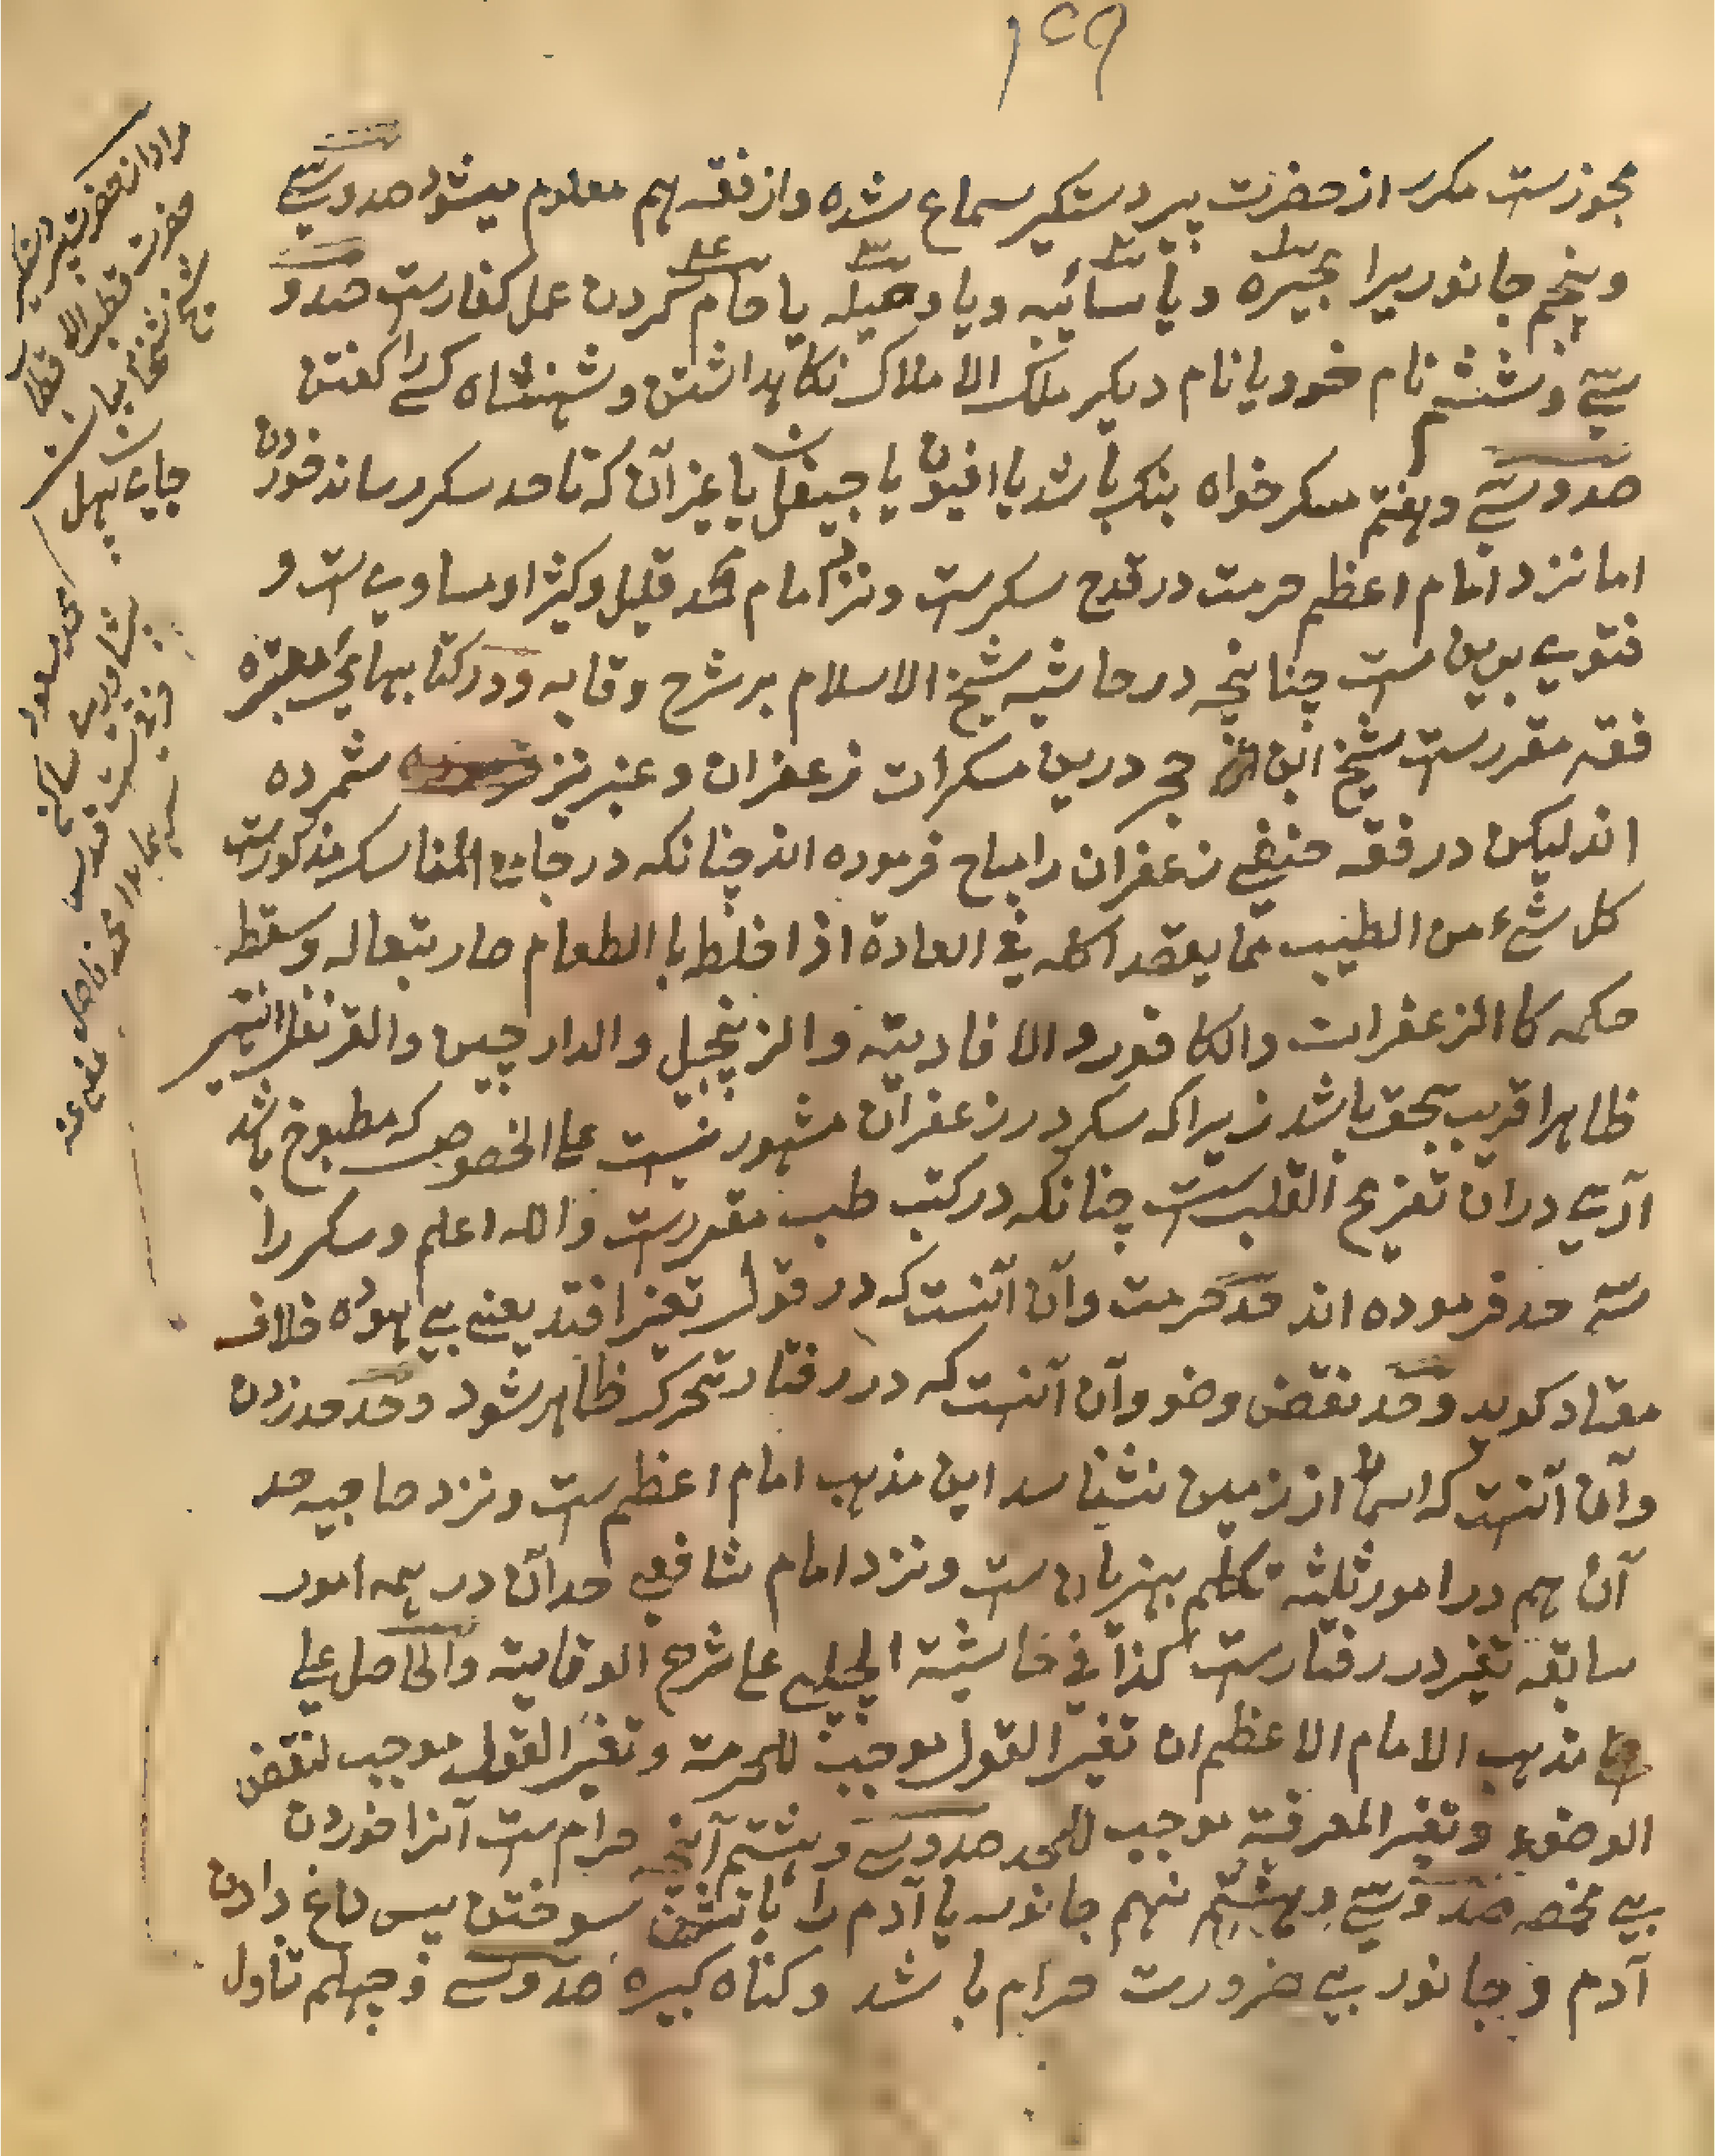 ۱۴۹
مجوزست مکرر از حضرت پیر دستکیر سماع شده و از فقه هم معلوم میشود صد و سی
و پنجم جانوریرا بحیره و یا سائبه و یا وصیله یا حام کردن عمل کفارست صد و
سی و ششم نام خود یا نام دیکر ملک الاملاک نکاهداشتن و شهنشاه کسی را کفتن
صد و سی و هفتم مسکر خواه بنک باشد یا افیون یا جیفل یا غیر آن که تا حد سکر رساند خوردن
اما نزد امام اعظم حرمت در قدح سکرست و نزد امام محمد قلیل و کثیر او مساوی ست و
فتوی برین ست چنانچه در حاشیه شیخ الاسلام بر شرح وقایه و در کتابهای معتبره
فقه مقررست شیخ ابن حجر درین مسکرات زعفران و عنبر نیز شمرده
اند لیکن در فقه حنفی زعفران را مباح فرموده اند چنانکه در جامع المناسک مذکورست
کل شیء من الطیب مما یقصد اکله فی العادة اذا خلط با الطعام صار تبعا له و سقط
حکمه کا الزعفران والکافور و الافادیة والزنجبیل والدارچین والقرنفل انتهی
ظاهرا قریب بحق باشد زیرا که سکر در زعفران مشهور نیست علی الخصوص که مطبوخ باشد
آری در ان تفریح القلب ست چنانکه در کتب طب مقررست والله اعلم و سکر را
سه حد فرموده اند حد حرمت و آن آنست که در قول تغیر افتد یعنی بی هوده خلاف
معتاد کوید و حد نقض وضو و آن آنست که در رفتار تحرک ظاهر شود و حد حد زدن
و آن آنست که اسمان از زمین نشناسد این مذهب امام اعظم ست و نزد صاحبیه حد
آن هم در امور ثلثه تکلم بهزیان ست و نزد امام شافعی حد آن در همه امور
سابقه تغیر در رفتارست کذا فی حاشیة الچلپی علی شرح الوقایة والحاصل علی
مذهب الامام الاعظم ان تغیر القول موجب للحرمة و تغیر القول موجب لنقض
الوضوء و تغیر المعرفة موجب للحد صد و سی و هشتم آنچه حرام ست آنرا خوردن
بی مخصه صد و سی و نهم جانور یا آدم را باتش سوختن پس داغ دادن
آدم و جانور بی ضرورت حرام باشد و کناه کبیره صد و سی و چهلم تناول
مراد از حضرت پیر دستکیر
حضرت قطب الاقطاب
شیخ
جای بهل